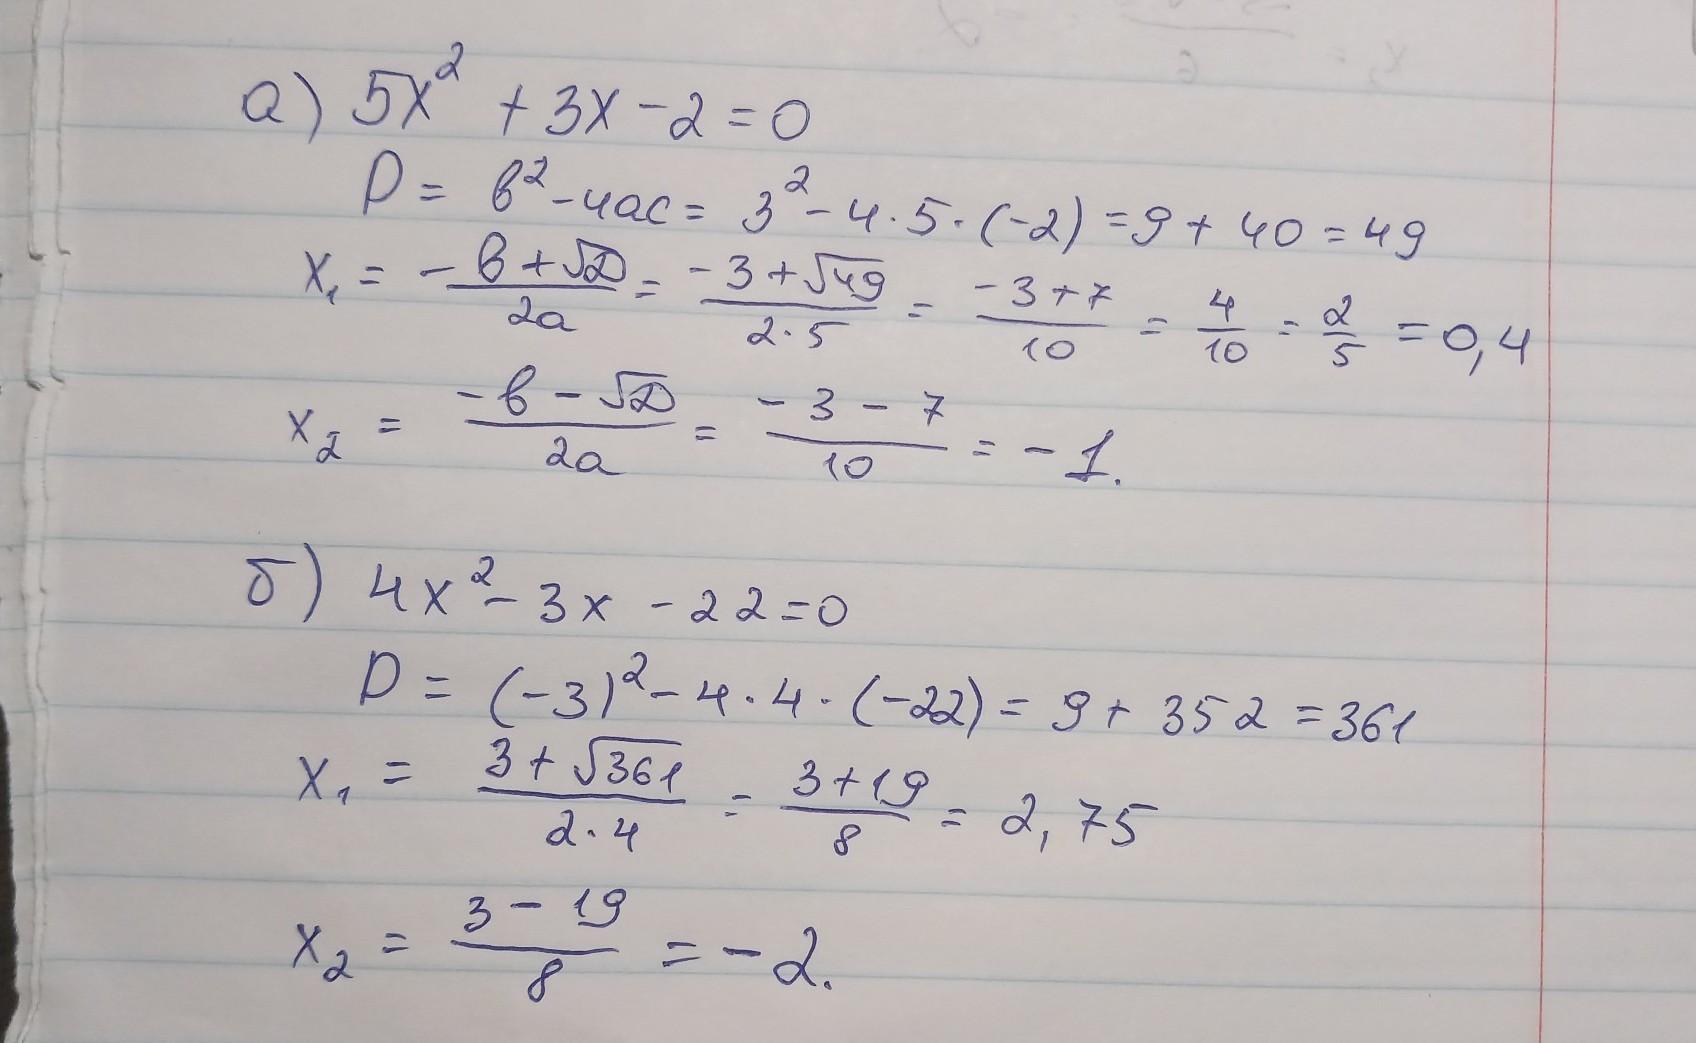 а) 5x² + 3x - 2 = 0
D = в² - 4ac = 3² - 4 · 5 · (-2) = 9 + 40 = 49
x₁ = -в + √D / 2a = -3 + √49 / 2 · 5 = -3 + 7 / 10 = 4/10 = 2/5 = 0,4
x₂ = -в - √D / 2a = -3 - 7 / 10 = -1.
б) 4x² - 3x - 22 = 0
D = (-3)² - 4 · 4 · (-22) = 9 + 352 = 361
x₁ = 3 + √361 / 2 · 4 = 3 + 19 / 8 = 2,75
x₂ = 3 - 19 / 8 = -2.